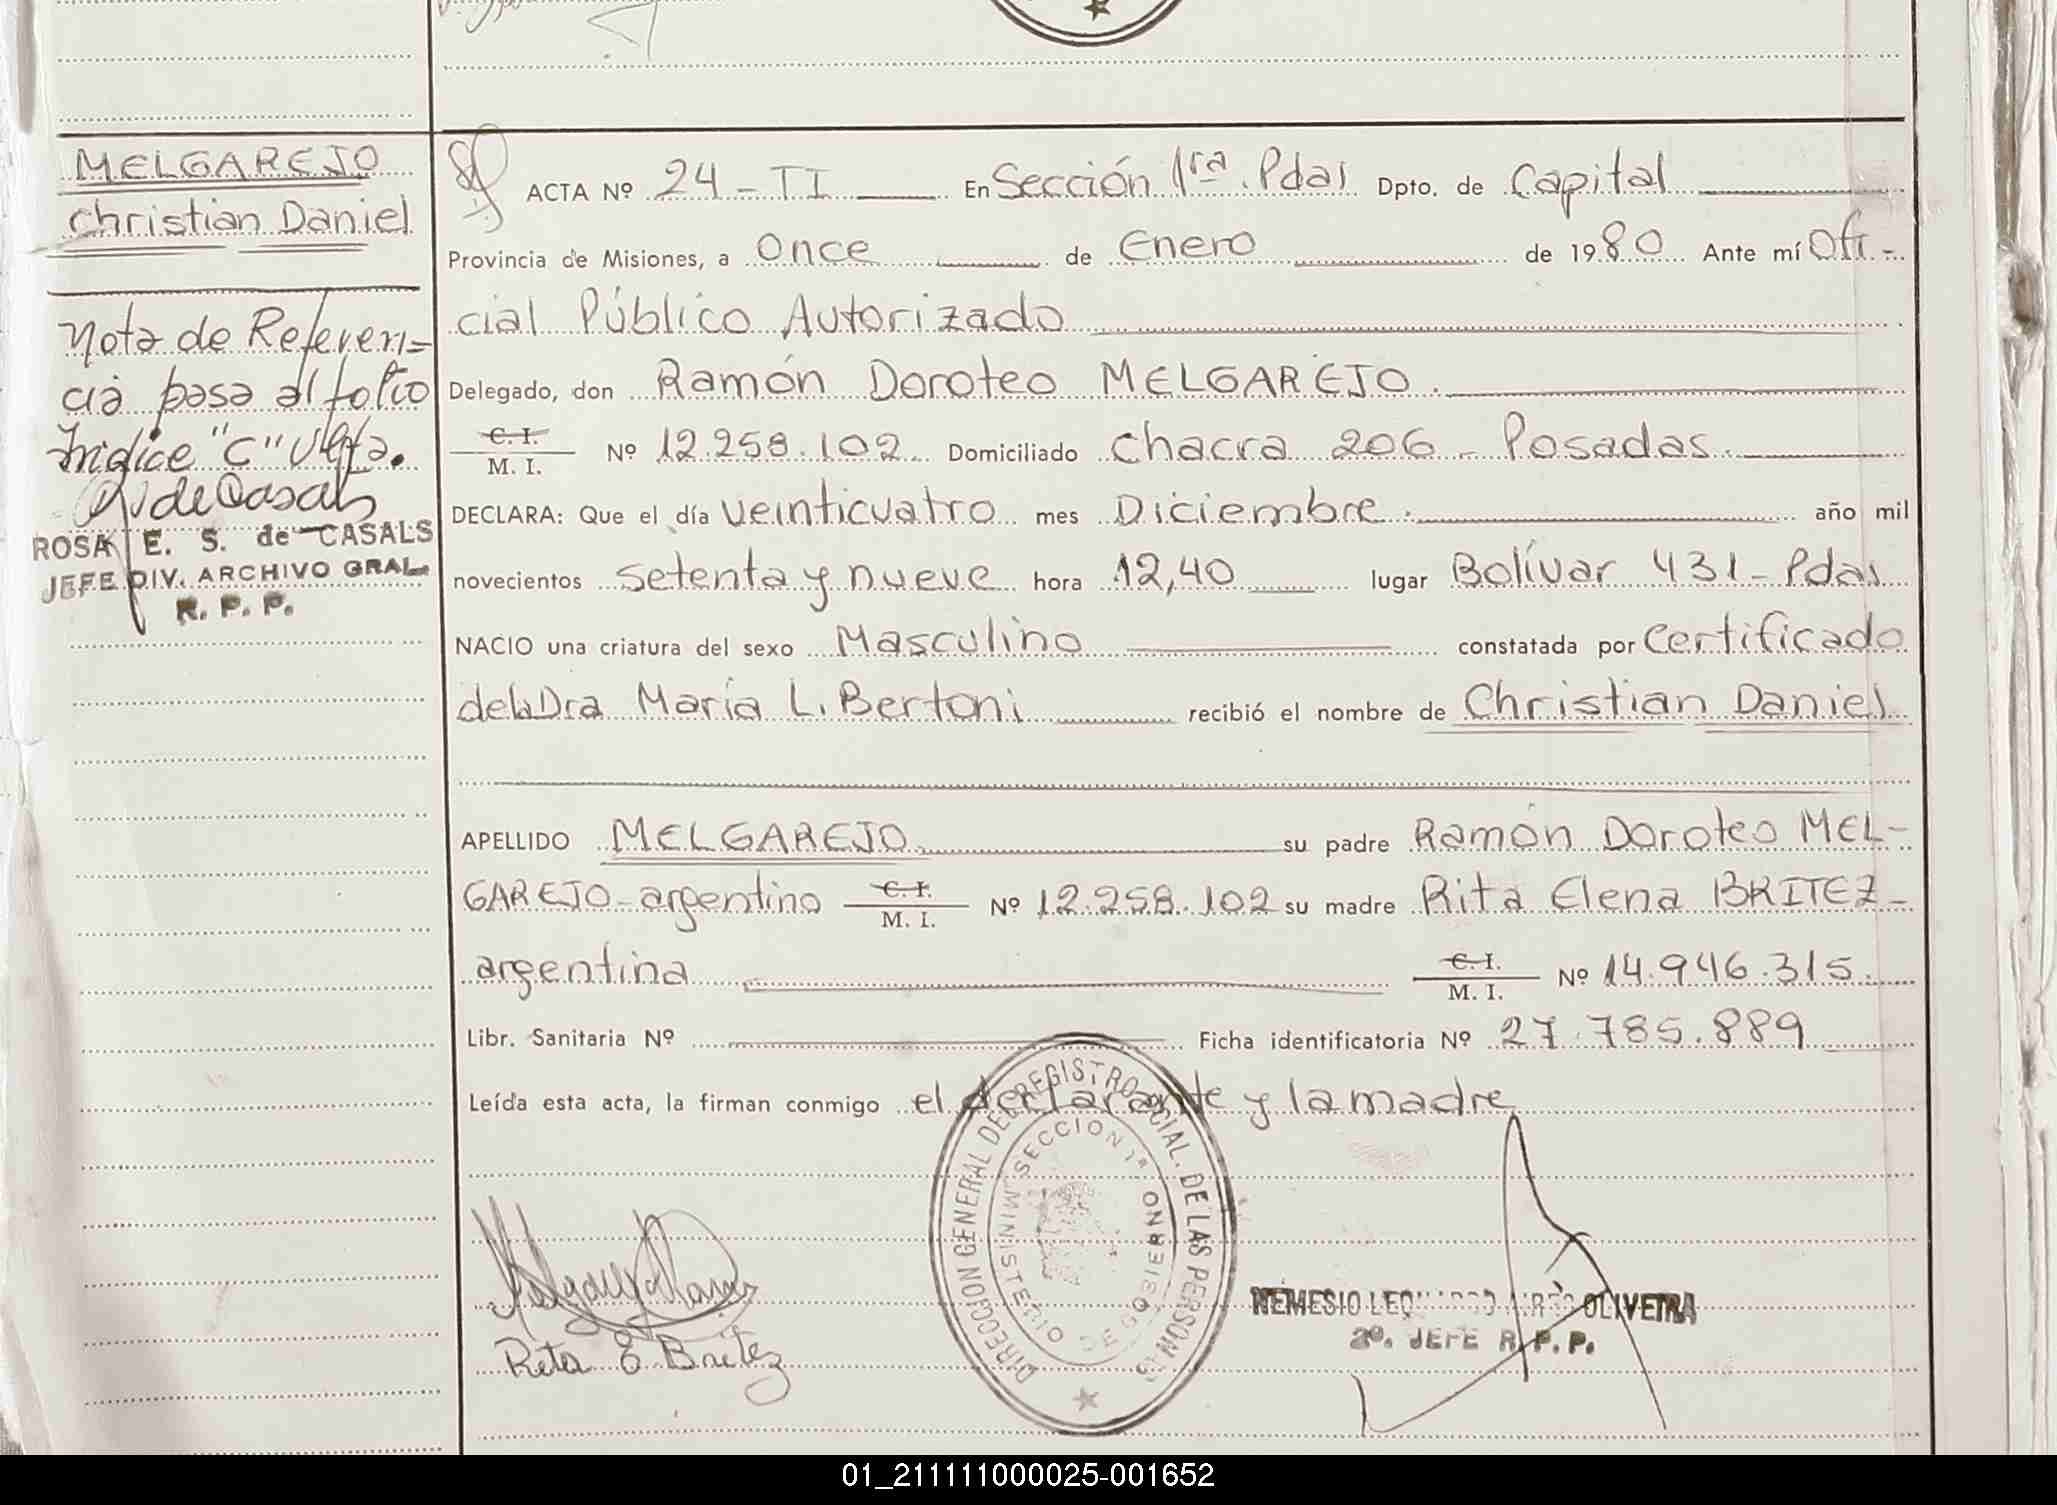 MELGAREJO
Christian Daniel
Nota de Referen=
cia pasa al folio
Indice "C" Vlta.
R S de Casals
ROSA E. S. de CASALS
JEFE DIV. ARCHIVO GRAL.
R. P. P.
ACTA Nº 24 - TI En Sección 1ra. Pdas Dpto. de Capital
Provincia de Misiones, a Once de Enero de 1980 Ante mí Ofi-
cial Público Autorizado
Delegado, don Ramón Doroteo MELGAREJO.
C. I.
M. I. Nº 12.258.102 Domiciliado Chacra 206 - Posadas.
DECLARA: Que el día veinticuatro mes Diciembre. año mil
novecientos setenta y nueve hora 12,40 lugar Bolívar 431 - Pdas
NACIO una criatura del sexo Masculino constatada por Certificado
de la Dra María L. Bertoni recibió el nombre de Christian Daniel
APELLIDO MELGAREJO su padre Ramón Doroteo MEL-
GAREJO - argentino C. I. M. I. Nº 12.258.102 su madre Rita Elena BRITEZ -
argentina C. I. M. I. Nº 14.946.315.
Libr. Sanitaria Nº Ficha identificatoria Nº 27.785.889
Leída esta acta, la firman conmigo el declarante y la madre
DIRECCION GENERAL DEL REGISTRO PCIAL. DE LAS PERSONAS
MINISTERIO DE GOBIERNO
SECCION 1ª
Rita E Britez
NEMESIO OLIVEIRA
2º. JEFE R. P. P.
01_211111000025-001652